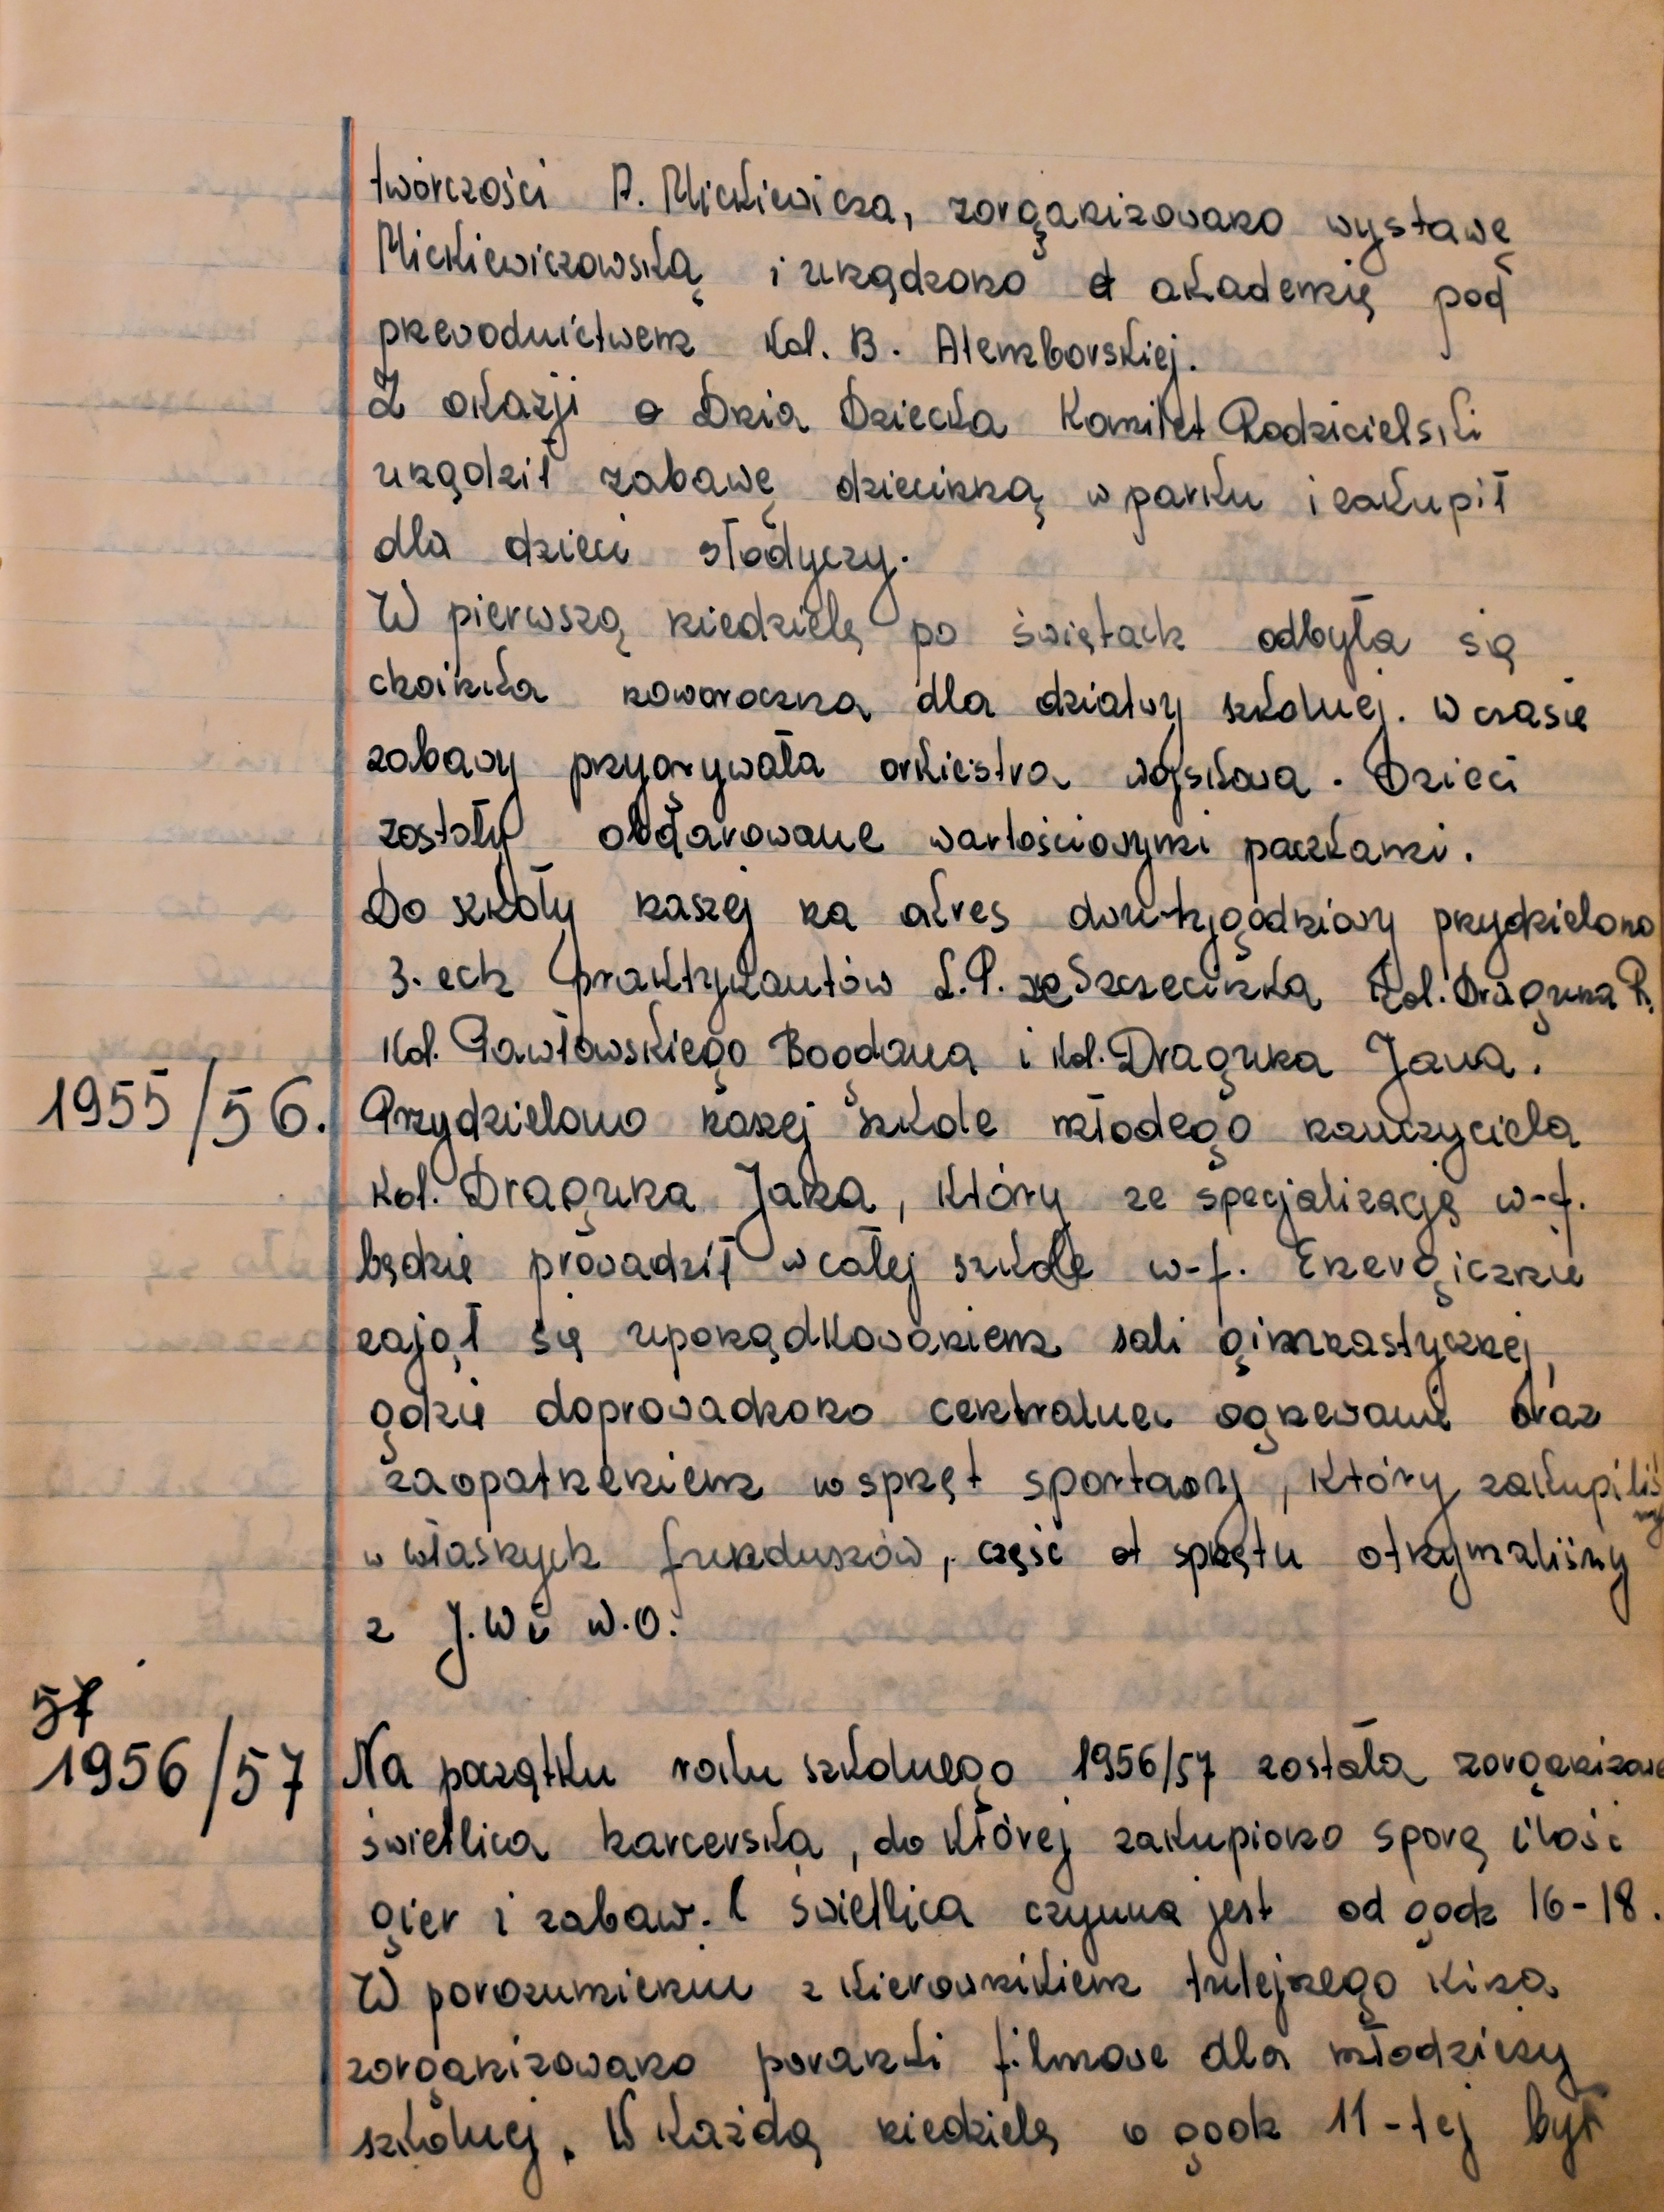 twórczości A. Mickiewicza, zorganizowano wystawę
Mickiewiczowską i urządzono akademię pod
przewodnictwem kol. B. Alemborskiej.
Z okazji Dnia Dziecka Komitet Rodzicielski
urządził zabawę dziecinną w parku i zakupił
dla dzieci słodyczy.
W pierwszą niedzielę po świętach odbyła się
choinka noworoczna dla dziatwy szkolnej. W czasie
zabawy przygrywała orkiestra wojskowa. Dzieci
zostały obdarowane wartościowymi paczkami.
Do szkoły naszej na okres dwu-tygodniowy przydzielono
3. ech praktykantów L.P. ze Szczecinka kol. Draguna R.
kol. Pawłowskiego Bogdana i kol. Draguna Jana.
1955/56. Przydzielono naszej szkole młodego nauczyciela
kol. Draguna Jana, który ze specjalizacją w-f.
będzie prowadził w całej szkole w-f. Energicznie
zajął się uporządkowaniem sali gimnastycznej,
gdzie doprowadzono centralne ogrzewanie oraz
zaopatrzeniem w sprzęt sportowy, który zakupiliśmy
w własnych funduszów, część sprzętu otrzymaliśmy
z J.W i W.O.
57
1956/57 Na początku roku szkolnego 1956/57 została zorganizowa
świetlica harcerska, do której zakupiono sporą ilość
gier i zabaw. Świetlica czynna jest od godz 16-18.
W porozumieniu z kierownikiem tutejszego kina
zorganizowano poranki filmowe dla młodzieży
szkolnej. W każdą niedzielę o godz 11-tej był